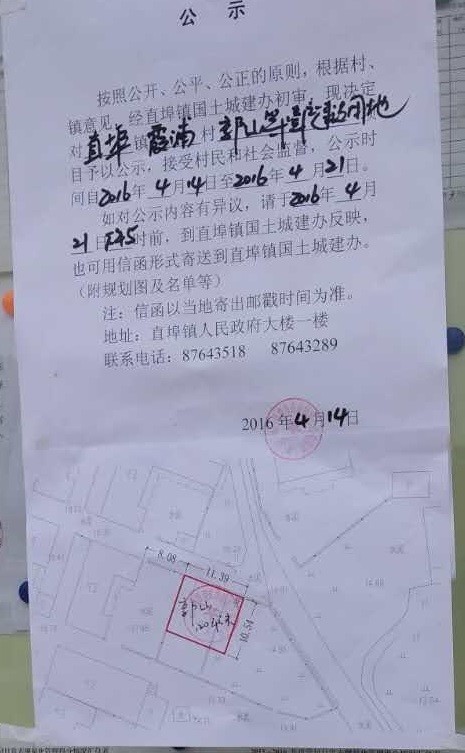 公 示
按照公开、公平、公正的原则，根据村、
镇意见，经直埠镇国土城建办初审，现决定
对直埠镇霞浦村郭山
目予以公示，接受村民和社会监督，公示时
间自2016年4月14日至2016年4月21日。
如对公示内容有异议，请于2016年4月
21日下午5时前，到直埠镇国土城建办反映，
也可用信函形式寄送到直埠镇国土城建办。
（附规划图及名单等）
注：信函以当地寄出邮戳时间为准。
地址：直埠镇人民政府大楼一楼
联系电话：87643518 87643289
2016年4月14日
8.08
11.39
郭山
10.54